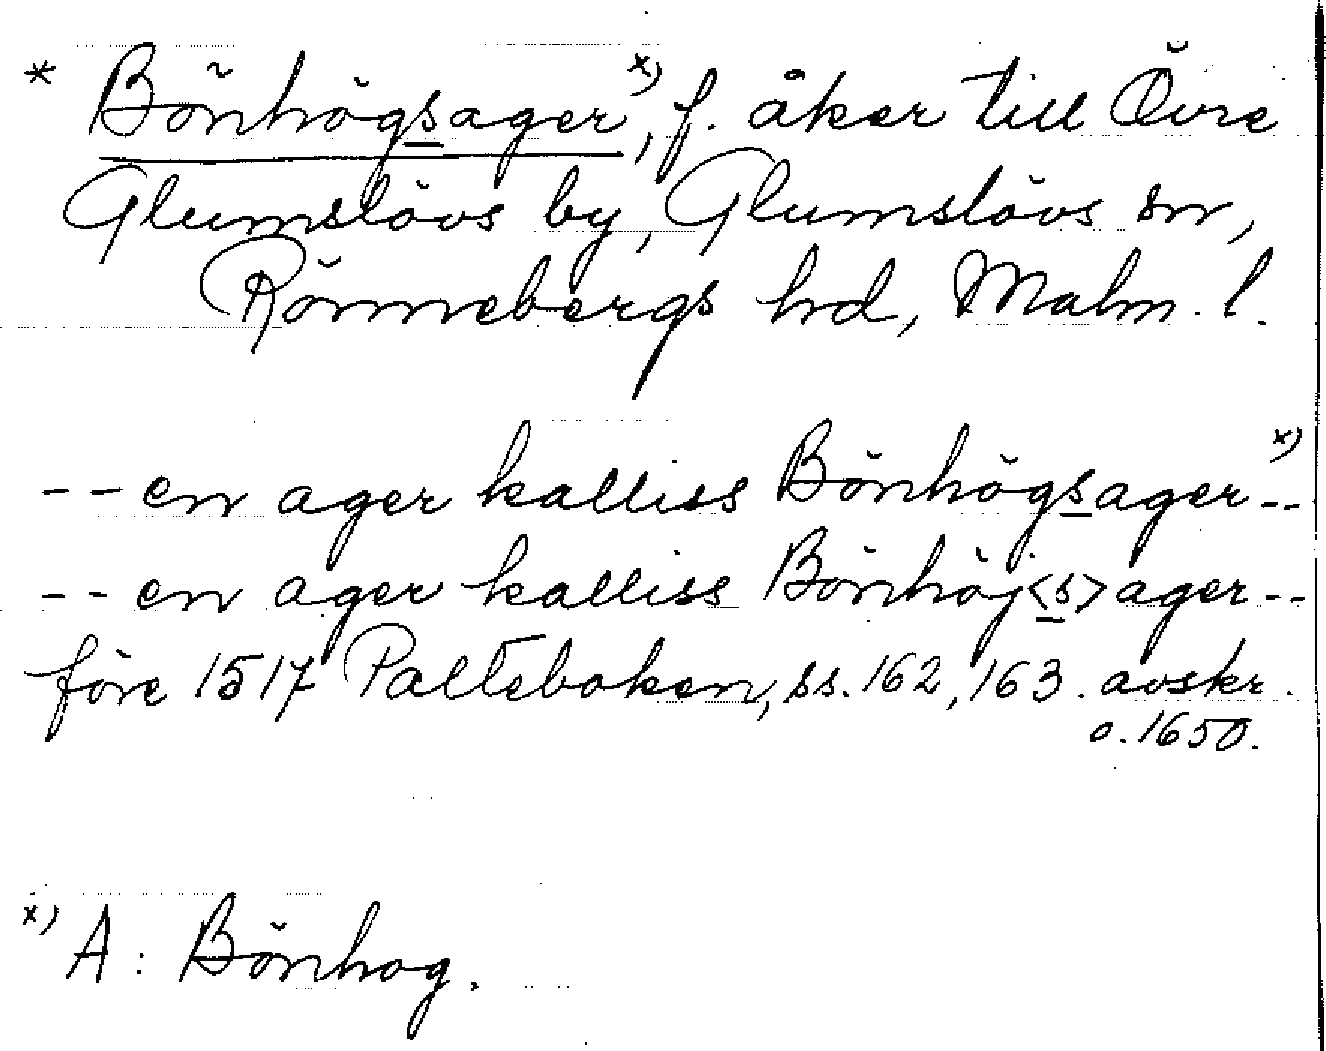 * Bönhögsager x), f. åker till Övre
Glumslövs by, Glumslövs sn,
Rönnebergs hrd, Malm. l.
-- en ager kalliss Bönhögsager x) --
-- en ager kalliss Bönhöj<s>ager --
före 1517 Palteboken, ss. 162, 163. avskr.
o. 1650.
x) A: Bönhog.